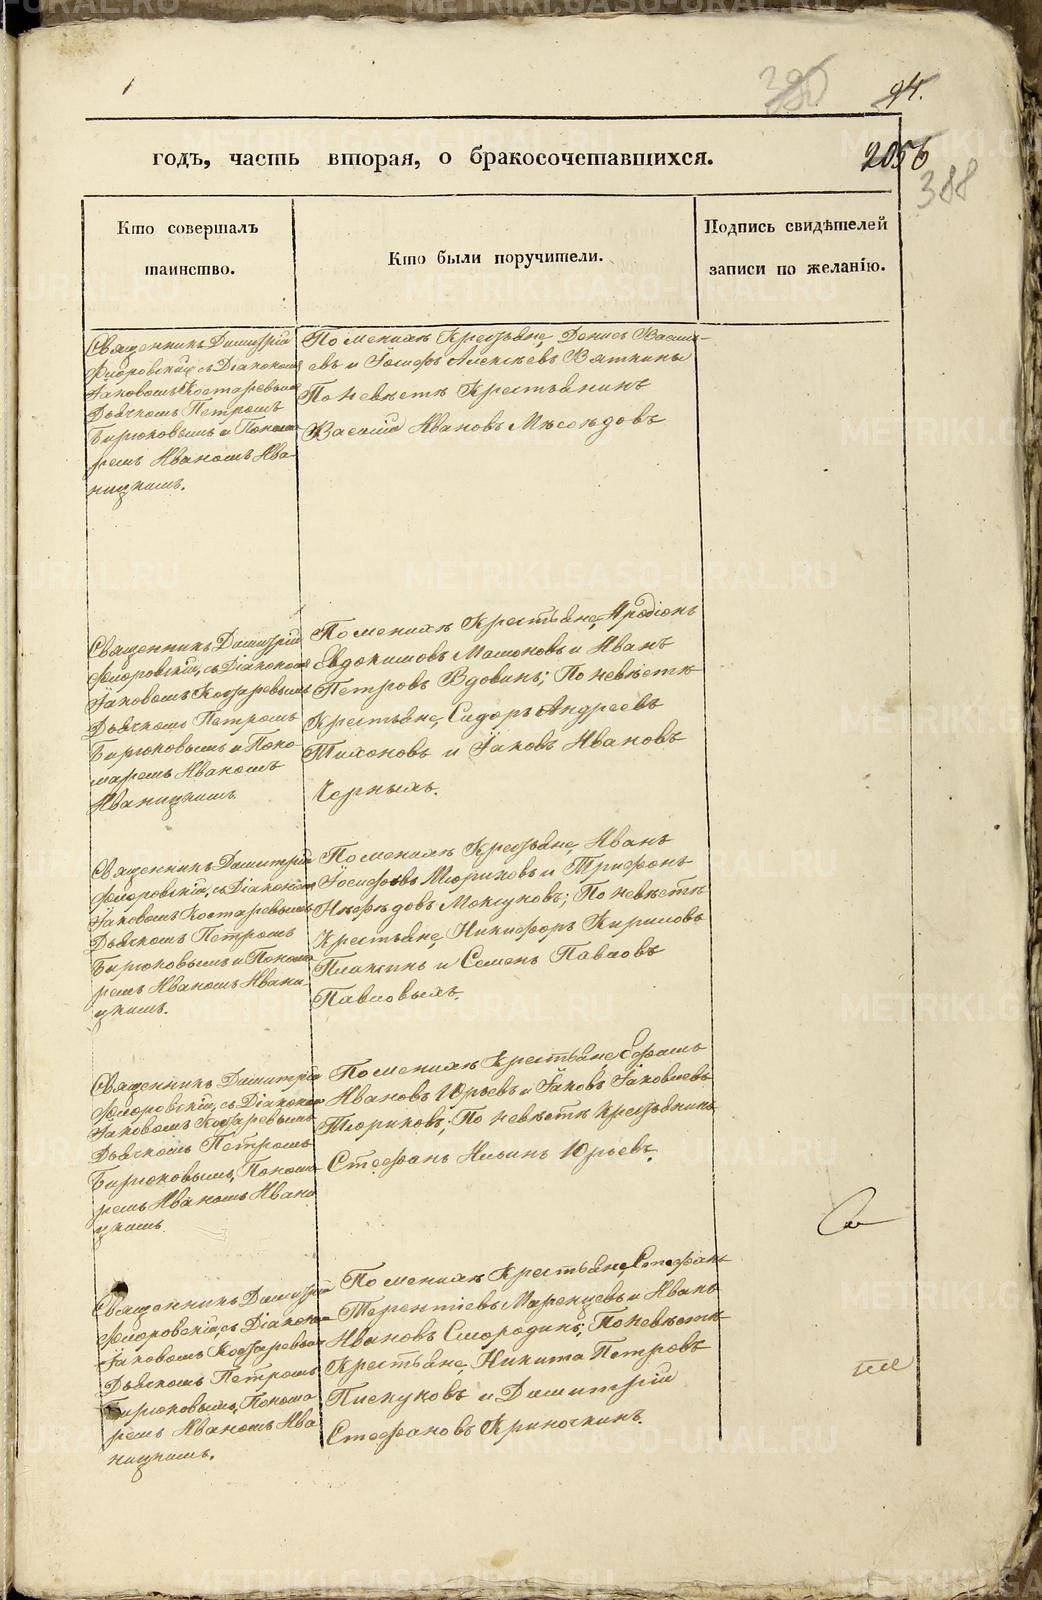 380
94.
годъ, часть вторая, о бракосочетавшихся.
2056
388
Кто совершалъ
таинство.
Кто были поручители.
Подпись свидѣтелей
записи по желанію.
Священникъ Димитрій
Флоровскій съ Діакономъ
Іаковомъ Костаревымъ
Дьячкомъ Петромъ
Бирюковымъ и Понома-
ремъ Иваномъ Ива-
ницкимъ.
По женихѣ Крестьяне, Денисъ Василь-
евъ и Іосифъ Алексѣевъ Вяткины
По невѣстѣ Крестьянинъ
Василій Ивановъ Мѣсоѣдовъ
Священникъ Димитрій
Флоровскій, съ Діакономъ
Іаковомъ Костаревымъ
Дьячкомъ Петромъ
Бирюковымъ и Поно-
маремъ Иваномъ
Иваницкимъ.
По женихѣ Крестьяне, Иродіонъ
Евдокимовъ Мамоновъ и Иванъ
Петровъ Вдовинъ; По невѣстѣ
Крестьяне, Сидоръ Андреевъ
Тихоновъ и Іаковъ Ивановъ
Черныхъ.
Священникъ Димитрій
Флоровскій, съ Діакономъ
Іаковомъ Костаревымъ
Дьячкомъ Петромъ
Бирюковымъ и Понома
ремъ Иваномъ Ивани-
цкимъ.
По женихѣ Крестьяне, Иванъ
Іосифовъ Тюриковъ и Трифонъ
Нефедовъ; По невѣстѣ
Крестьяне, Никифоръ Кириловъ
и Семенъ Павловъ
Павловыхъ.
Священникъ Димитрій
Флоровскій, съ Діакономъ
Іаковомъ Костаревымъ
Дьячкомъ Петромъ
Бирюковымъ, Понома-
ремъ Иваномъ Ивани
цкимъ.
По женихѣ Крестьяне, Ефимъ
Ивановъ Юрьевъ и Іаковъ Іаковлевъ
Тюриковъ; По невѣстѣ Крестьянинъ
Стефанъ Ильинъ Юрьевъ.
Священникъ Димитрій
Флоровскій, съ Діакономъ
Іаковомъ Костаревымъ
Дьячкомъ Петромъ
Бирюковымъ, Понома
ремъ Иваномъ Ива
ницкимъ.
По женихѣ Крестьяне, Стефанъ
Терентіевъ Маренцевъ и Иванъ
Ивановъ Смородинъ; По невѣстѣ
Крестьяне, Никита Петровъ
Пискуновъ и Димитрій
Стефановъ Криночкинъ.
METRIKI.GASO-URAL.RU